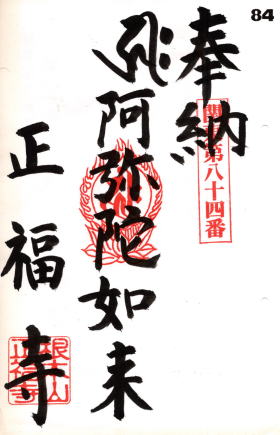 84
奉納
第八十四番
阿弥陀如来
正福寺
正福寺